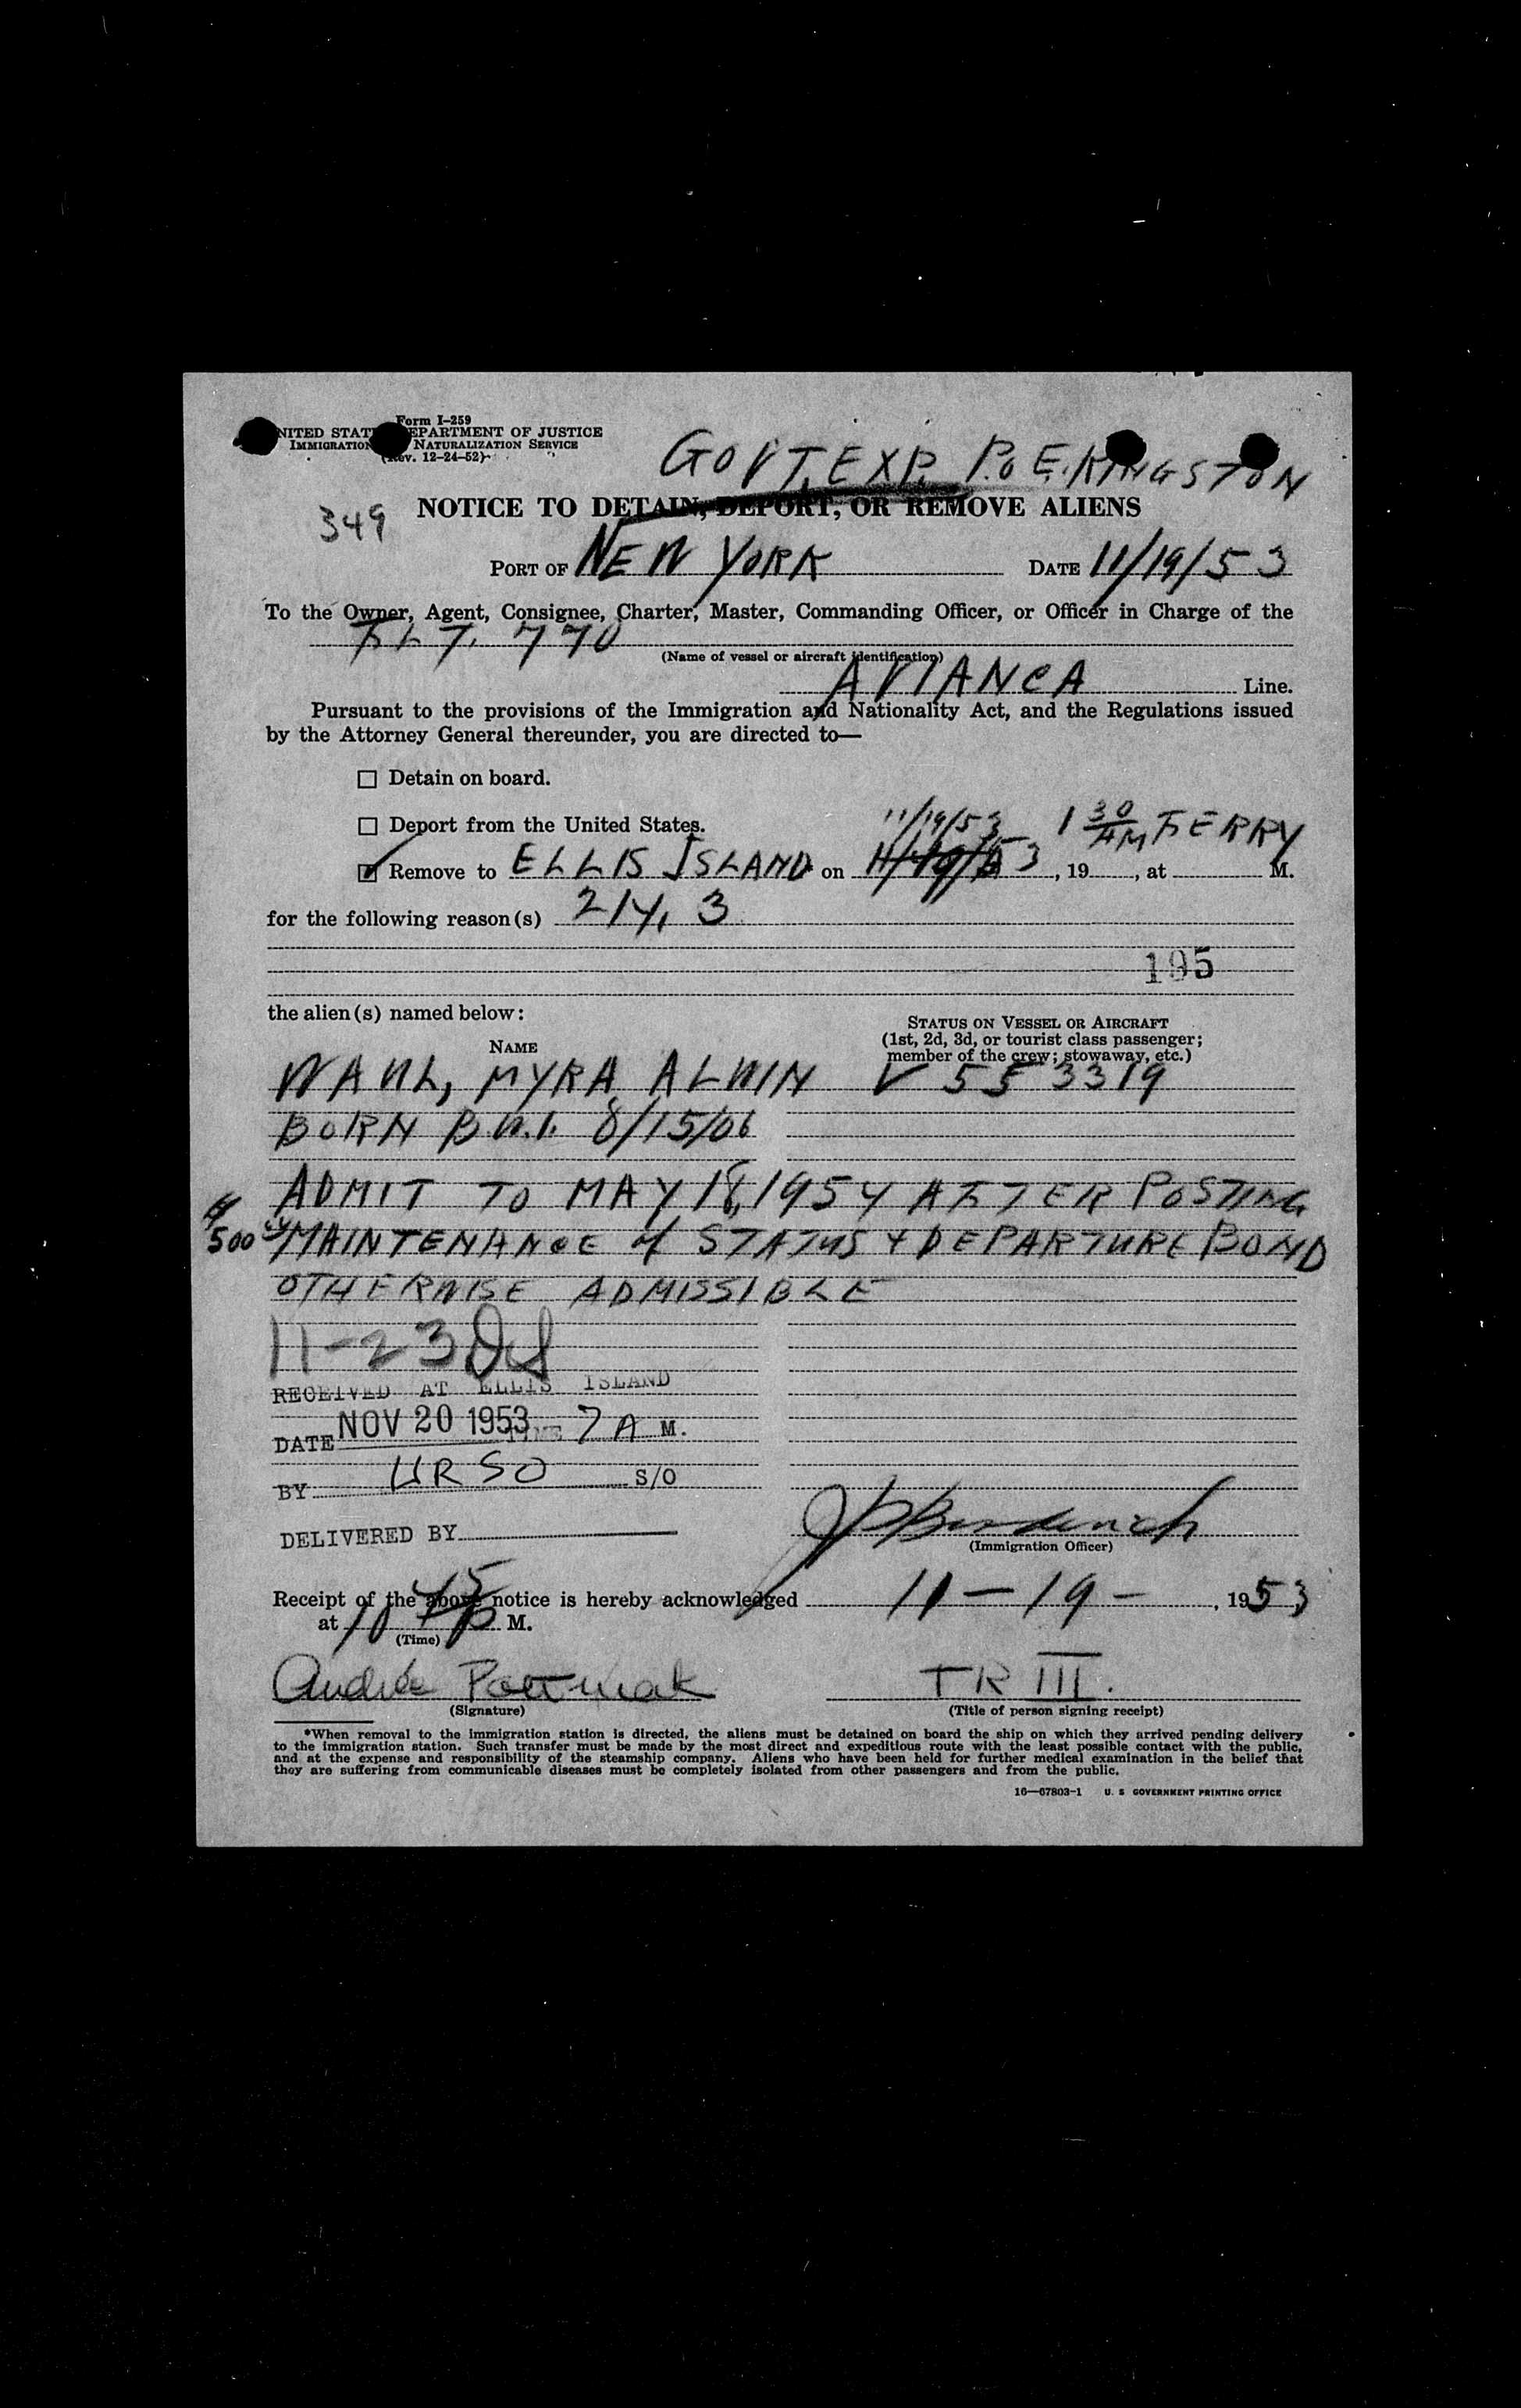 Form I-259
UNITED STATES DEPARTMENT OF JUSTICE
IMMIGRATION NATURALIZATION SERVICE
(Rev. 12-24-52)
GOVT. EXP. P.O.E. KINGSTON
349
NOTICE TO DETAIN, DEPORT, OR REMOVE ALIENS
PORT OF NEW YORK DATE 11/19/53
To the Owner, Agent, Consignee, Charter, Master, Commanding Officer, or Officer in Charge of the
FLT. 770
(Name of vessel or aircraft identification)
AVIANCA Line.
Pursuant to the provisions of the Immigration and Nationality Act, and the Regulations issued
by the Attorney General thereunder, you are directed to—
☐ Detain on board.
☐ Deport from the United States.
11/19/53 1 30 AM FERRY
Remove to ELLIS ISLAND on , 19 , at M.
for the following reason(s) 214.3
195
the alien(s) named below:
STATUS ON VESSEL OR AIRCRAFT
(1st, 2d, 3d, or tourist class passenger;
member of the crew; stowaway, etc.)
NAME
MYRA ALWIN V 553319
BORN B.W.I. 8/15/06
ADMIT TO MAY 18, 1954 AFTER POSTING
$500 MAINTENANCE of STATUS + DEPARTURE BOND
OTHERWISE ADMISSIBLE
11-23
RECEIVED AT ELLIS ISLAND
DATE NOV 20 1953 TIME 7 A M.
BY URSO S/O
DELIVERED BY
(Immigration Officer)
Receipt of the above notice is hereby acknowledged 11-19-, 1953
at 10 45 P M.
(Time)
Andrée TR III.
(Signature) (Title of person signing receipt)
*When removal to the immigration station is directed, the aliens must be detained on board the ship on which they arrived pending delivery
to the immigration station. Such transfer must be made by the most direct and expeditious route with the least possible contact with the public,
and at the expense and responsibility of the steamship company. Aliens who have been held for further medical examination in the belief that
they are suffering from communicable diseases must be completely isolated from other passengers and from the public.
16—67803-1 U. S GOVERNMENT PRINTING OFFICE